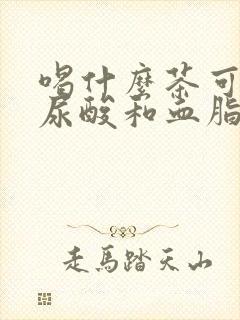 喝什麼茶可
尿酸和血脂
走馬踏天山